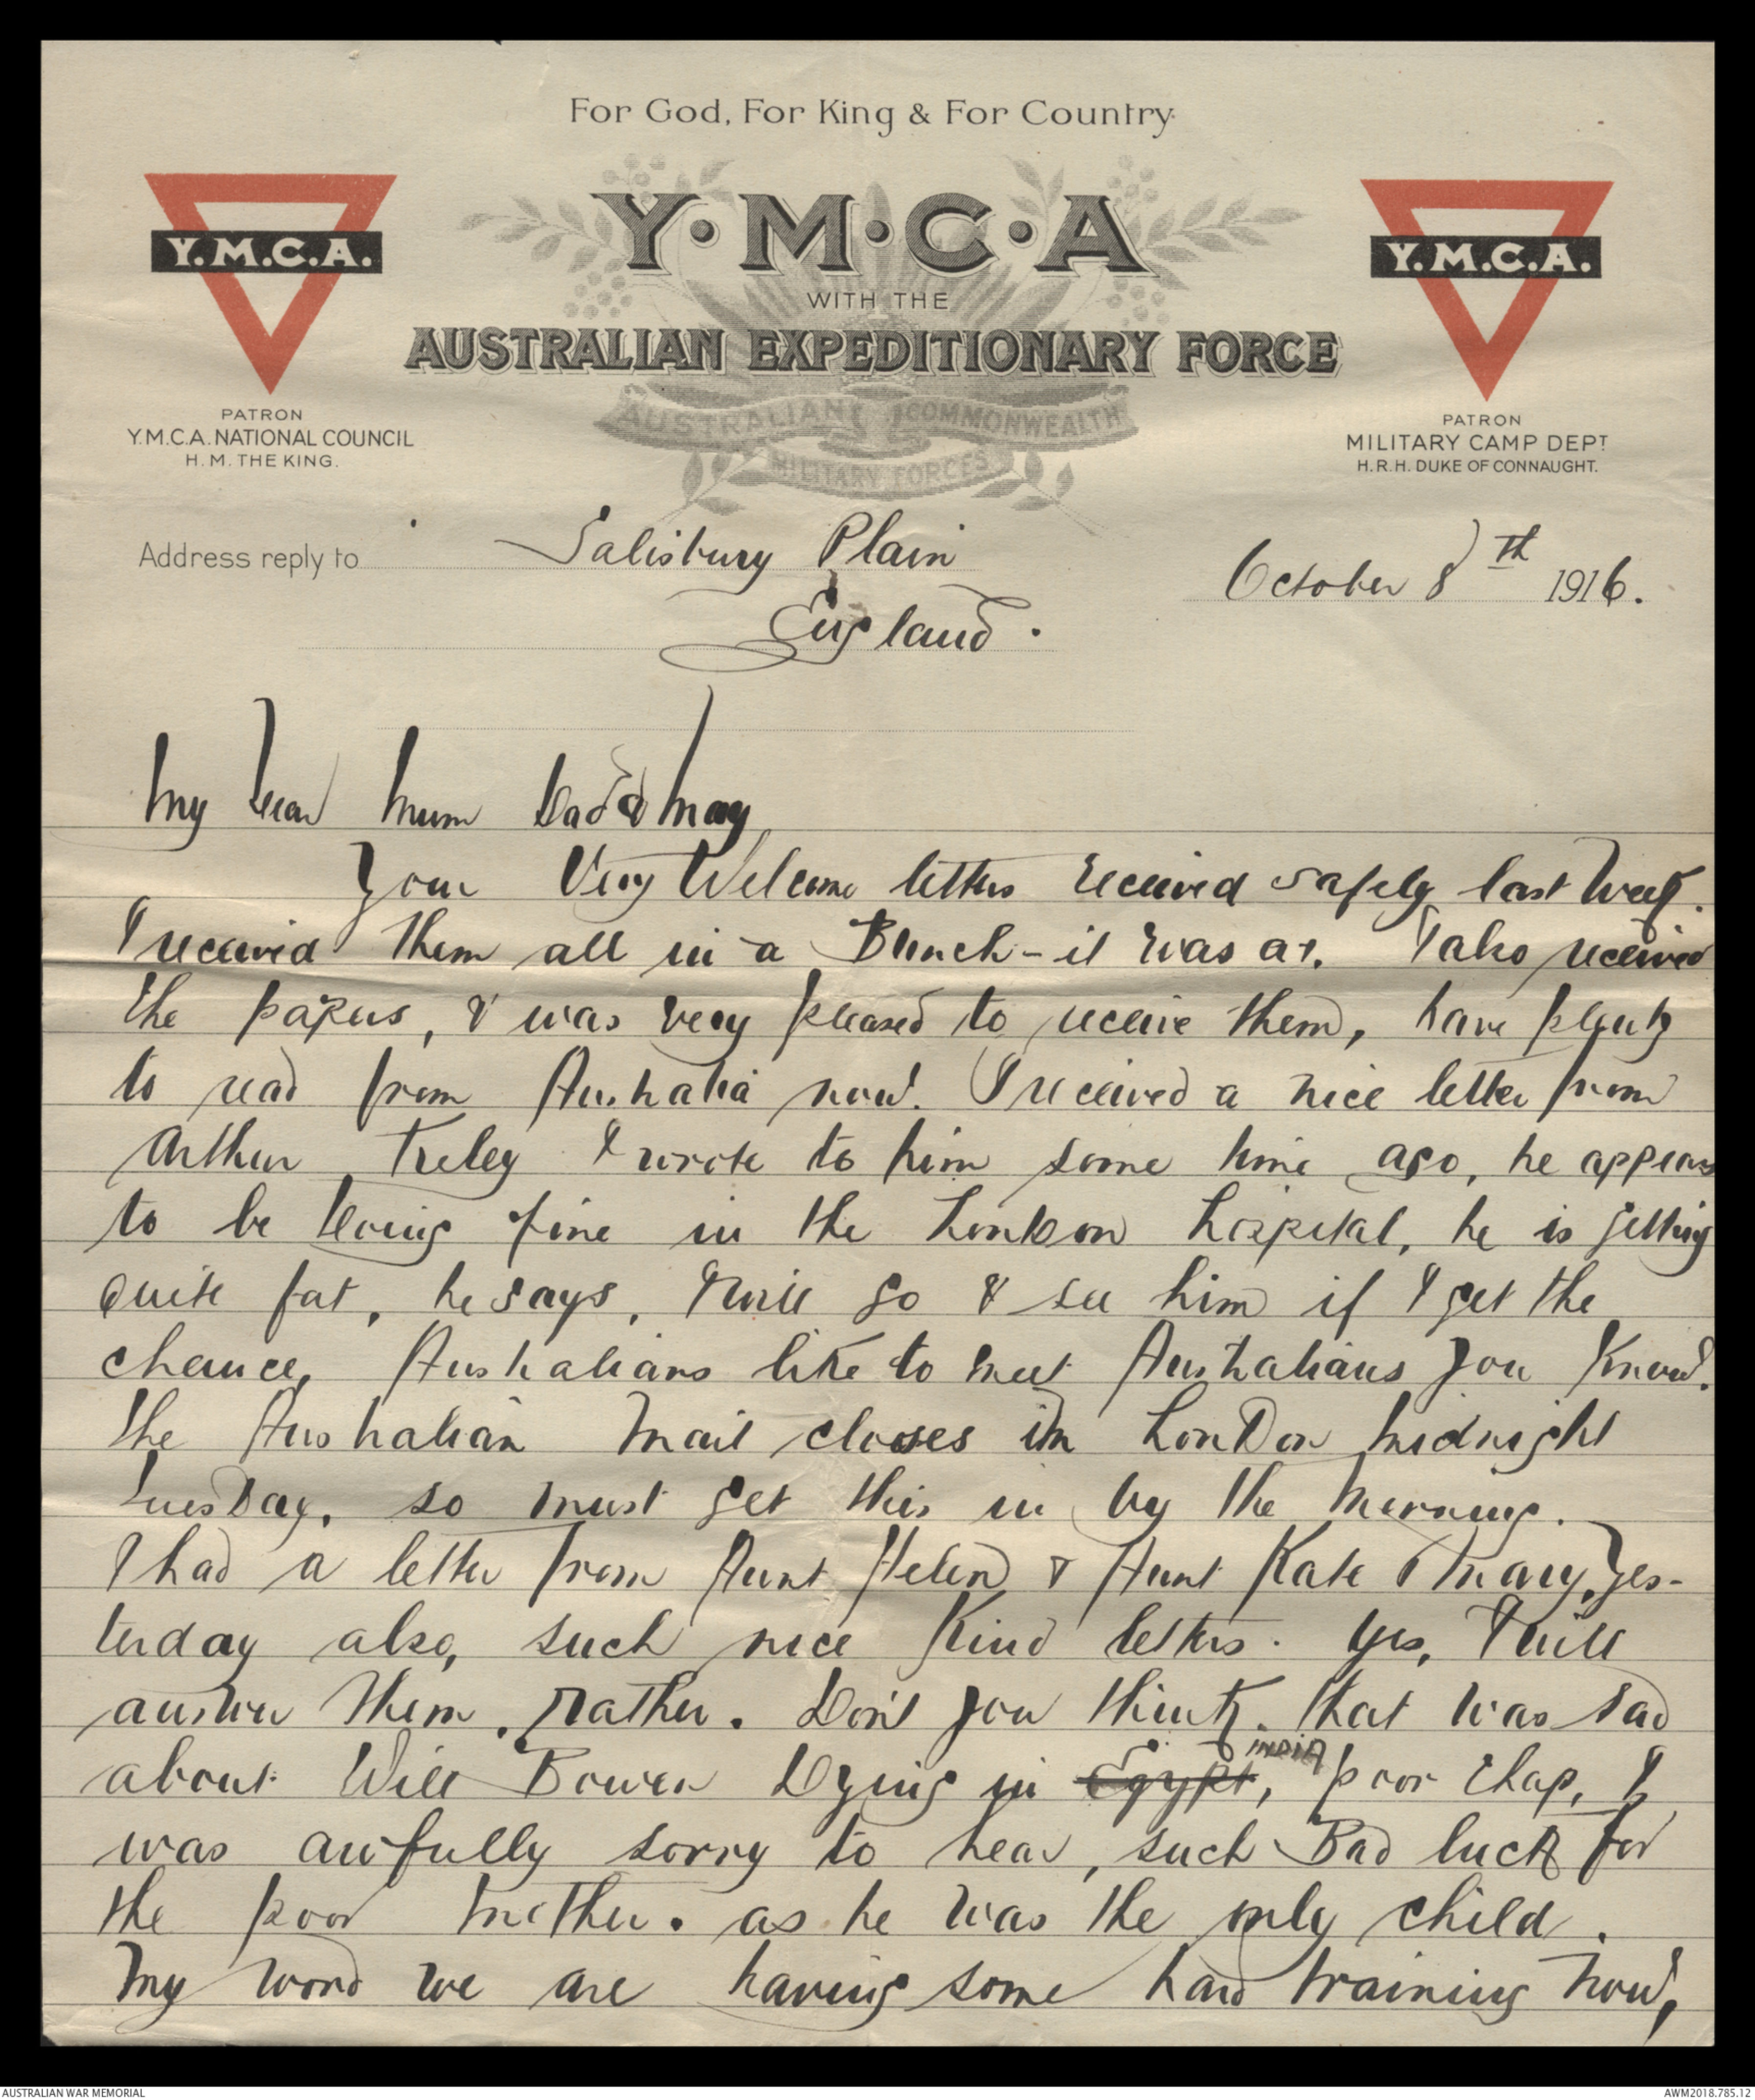 For God, For King & For Country.
Y·M·C·A
WITH THE
AUSTRALIAN EXPEDITIONARY FORCE
AUSTRALIAN COMMONWEALTH
MILITARY FORCES
Y.M.C.A.
PATRON
Y.M.C.A. NATIONAL COUNCIL
H. M. THE KING.
Y.M.C.A.
PATRON
MILITARY CAMP DEPT
H.R.H. DUKE OF CONNAUGHT.
Address reply to Salisbury Plain
England.
October 8th 1916.
My Dear Mum Dad & May
Your Very Welcome letters received safely last Week.
I received them all in a Bunch - it was at. I also received
the papers, & was very pleased to receive them, have plenty
to read from Australia now. I received a nice letter from
Arthur I wrote to him some time ago, he appears
to be Doing fine in the London Hospital, he is getting
quite fat, he says, I will go & see him if I get the
chance, Australians like to meet Australians you know.
The Australian Mail closes in London midnight
Tuesday, so must get this in by the morning.
I had a letter from Aunt Helen & Aunt Kate & Mary, yes-
terday also, such nice kind letters. Yes, I will
answer them, rather. Don't you think that was sad
about Will Bower Dying in Egypt, INDIA poor chap, I
was awfully sorry to hear, such Bad luck for
the poor Mother. as he was the only child.
My word we are having some hard training now,
AUSTRALIAN WAR MEMORIAL
AWM2018.785.12